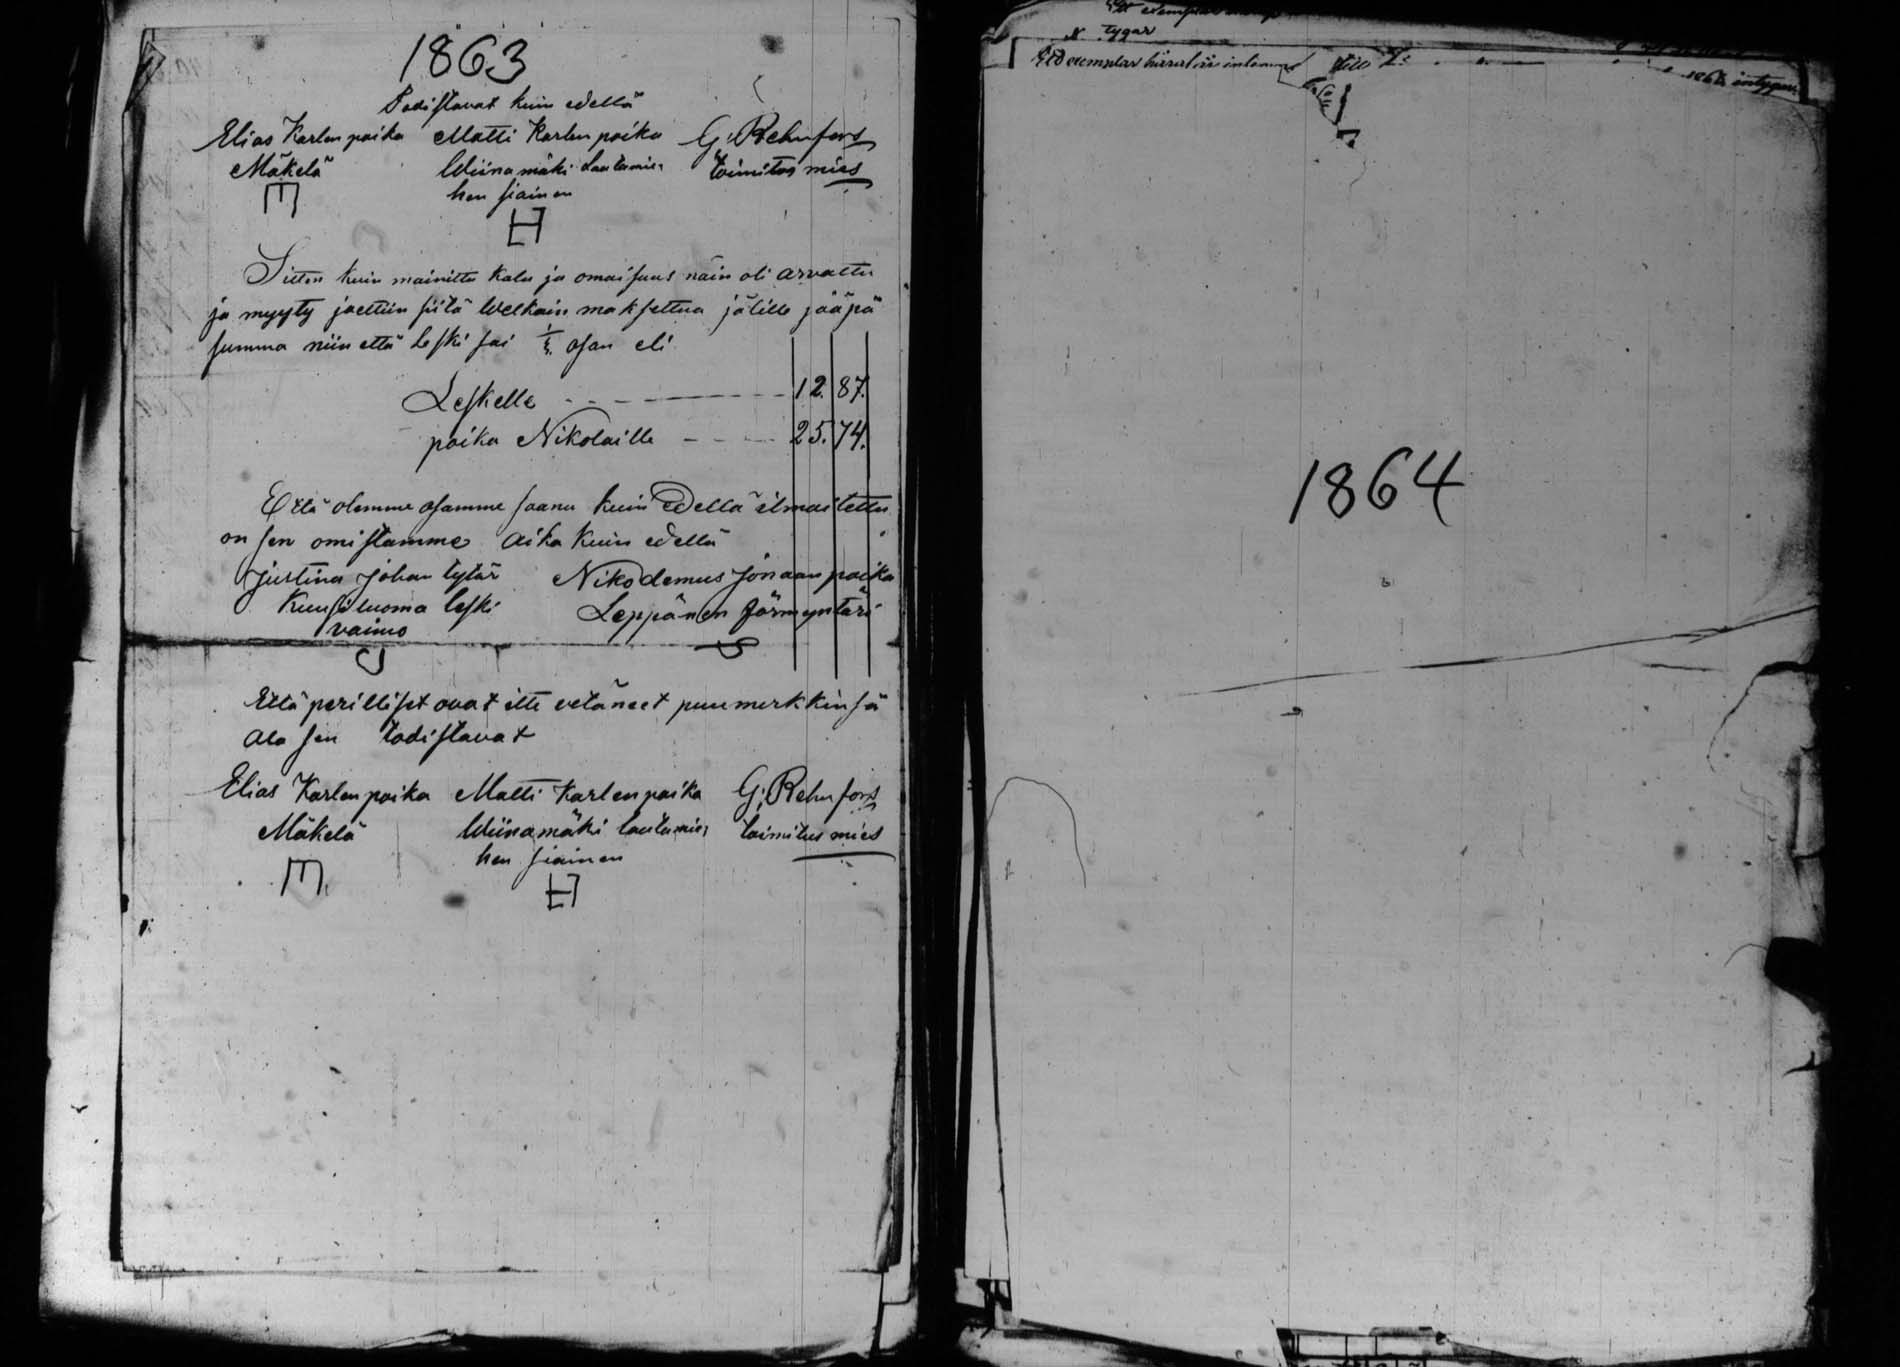 1863
Todistavat kuin edellä
Elias Karlen poika Matti Karlen poika G. Rehnfors
Mäkelä Wiinamäki Lautamie, toimitus mies
hen siainen
Sitten kuin mainittu kalu ja omaisuus näin oli arvattu
ja myyty jaettiin siitä Welkain maksettua jälille jääpä
summa niin että Leski sai osan eli
Leskelle 12. 87.
poika Nikolaille 25. 74.
Että olemme osamme saanu kuin edellä ilmoitettu
on sen omistamme Aika kuin edellä
Justina Johan tytär Nikodemus Jonaan poika
Kuusiluoma leski Leppänen förmyntäri
vaimo
Että perilliset ovat itte vetäneet puumerkkinsä
ala sen todistavat
Elias Karlen poika Matti Karlen poika G. Rehnfors
Mäkelä Wiinamäki lautamie, toimitus mies
hen siainen
tygar
1864